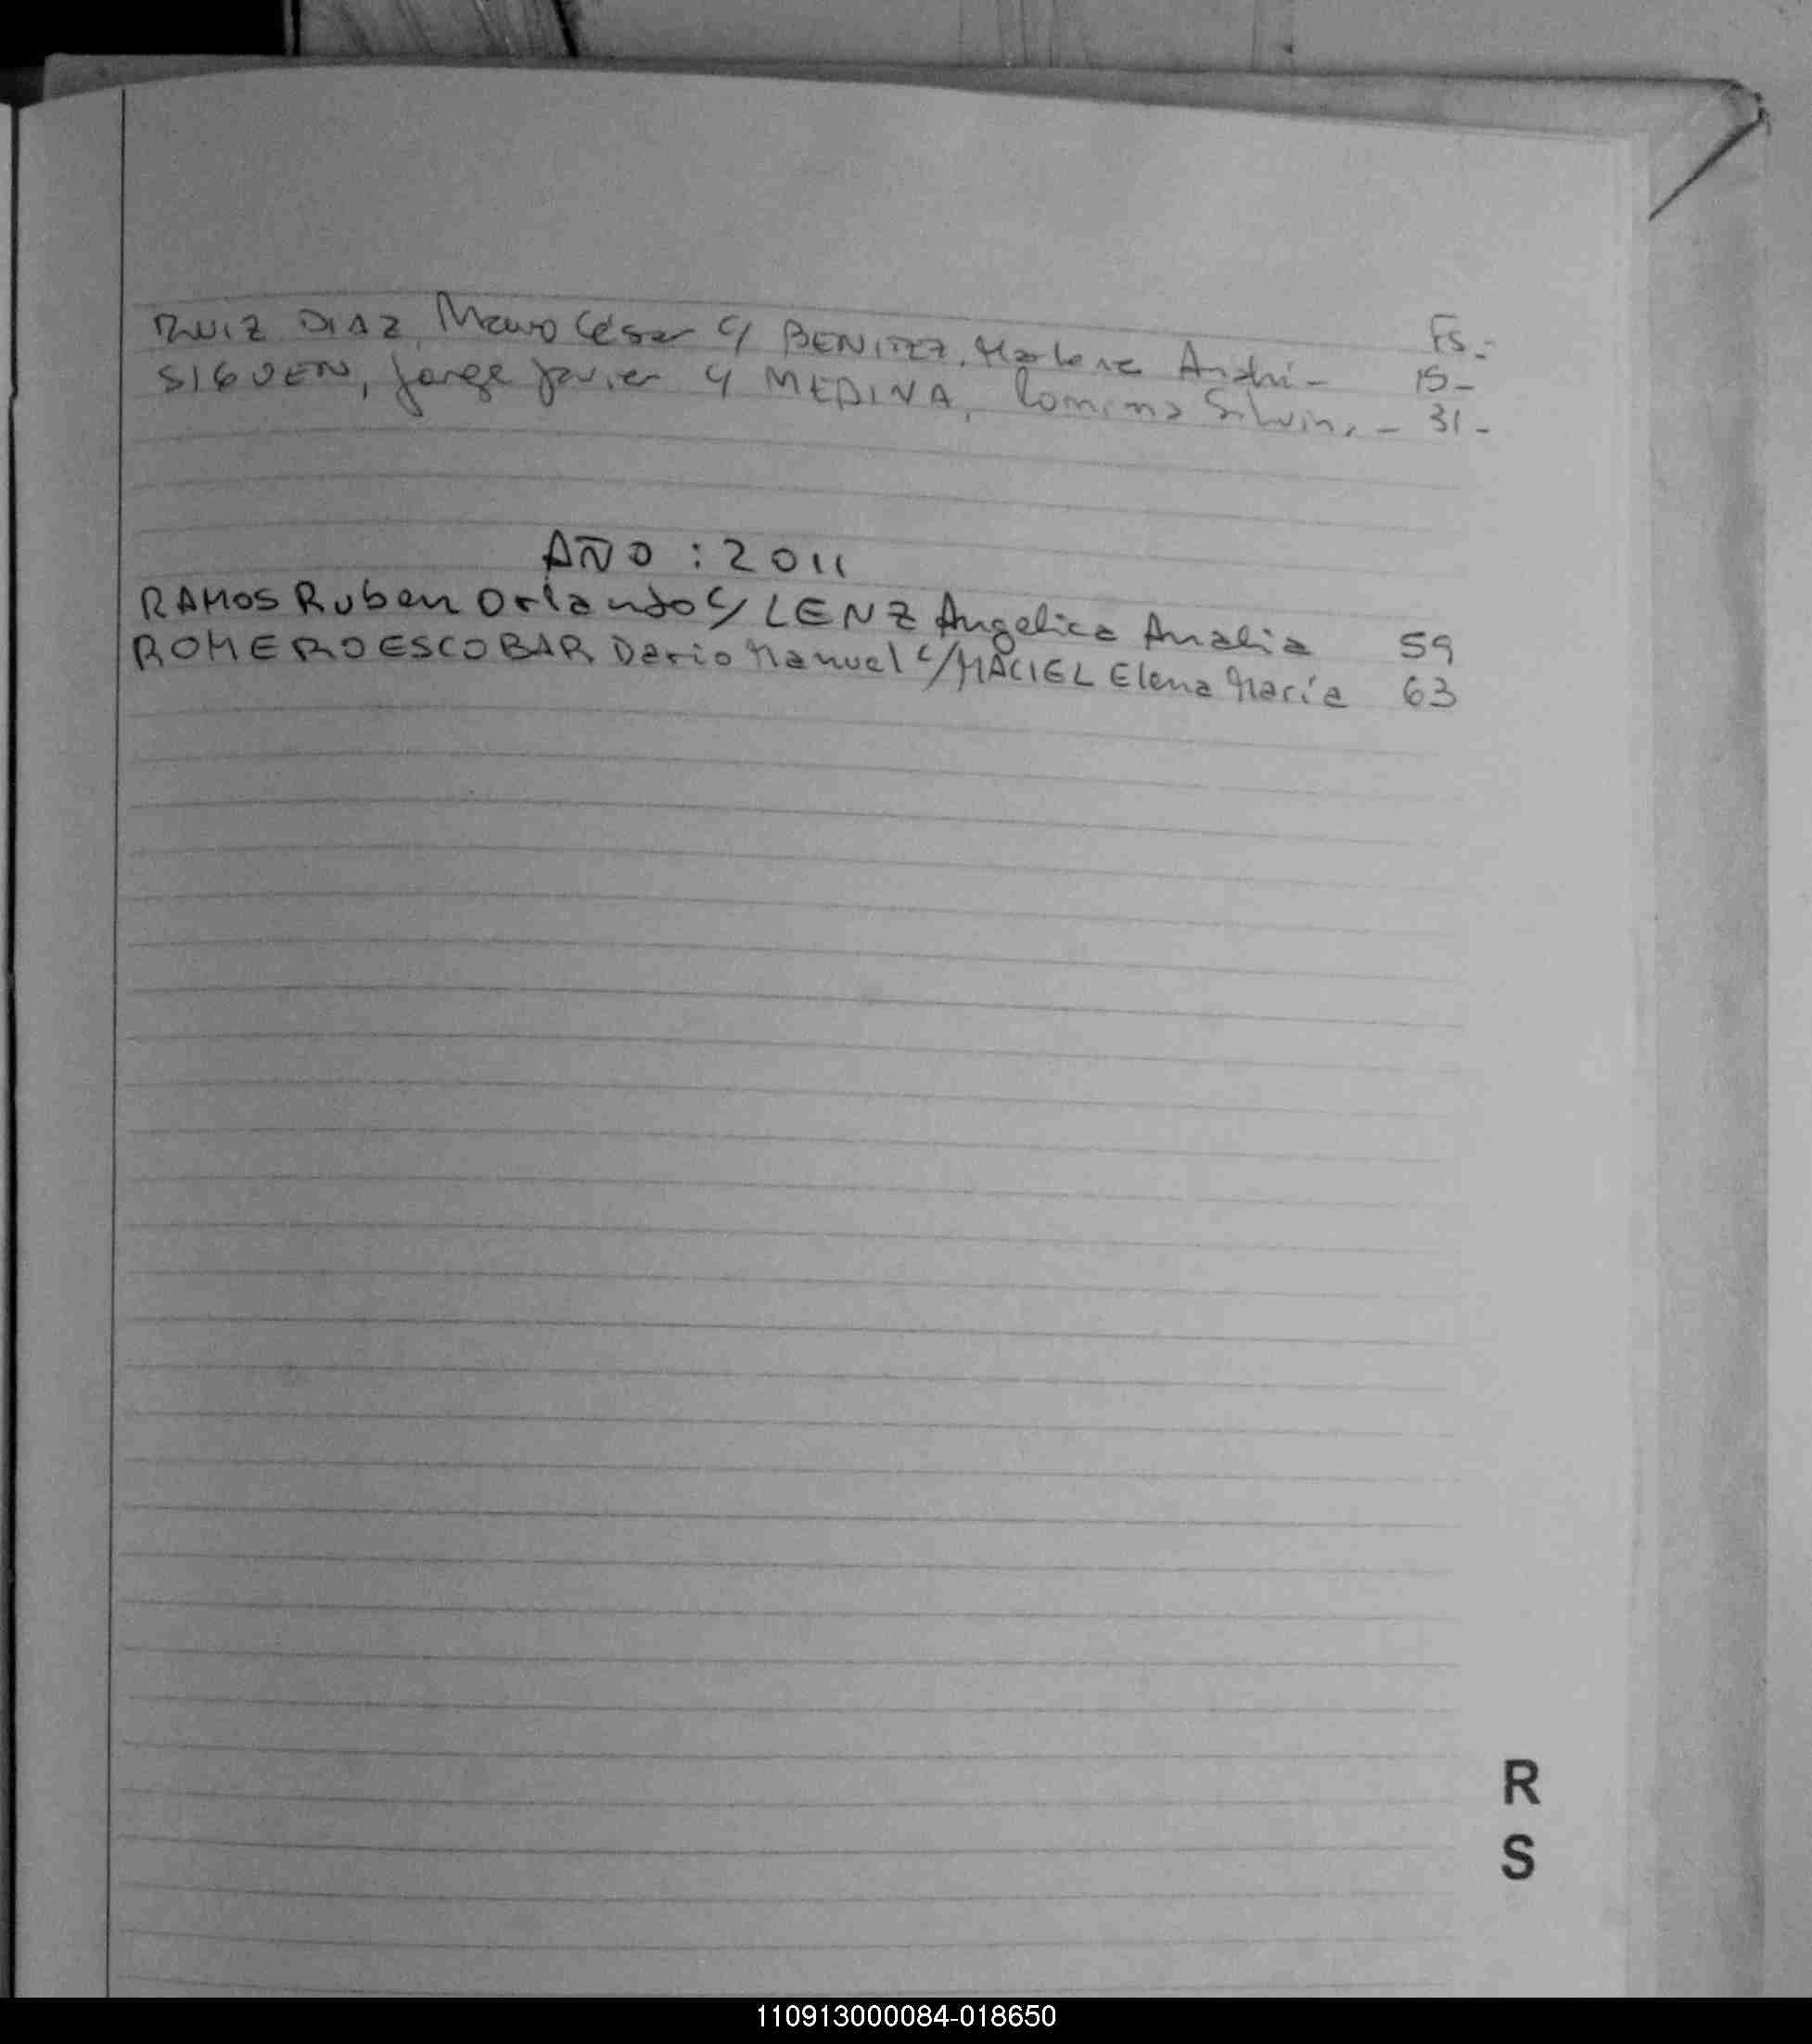 Fs.-
RUIZ DIAZ, Mauro César c/ BENITEZ, Marlene Andri- 15-
SIGUEN, Jorge Javier c/ MEDINA, Romina Silvina - 31-
AÑO : 2011
RAMOS Ruben Orlando c/ LENZ Angelica Analia 59
ROMERO ESCOBAR Dario Manuel c/ MACIEL Elena María 63
R
S
110913000084-018650